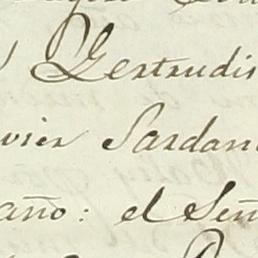 Gertrudis
vier Sardan
año: el Señ